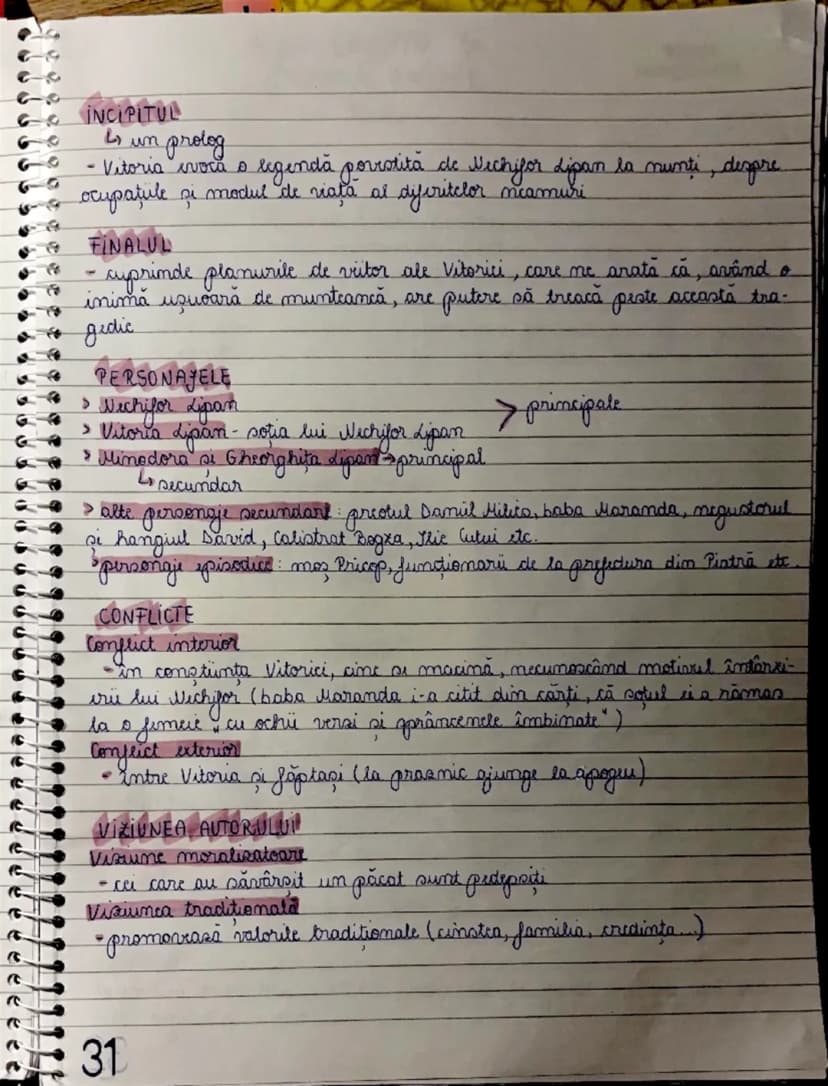 INCIPITUL
↳ un prolog
- Vitoria evocă o legendă povestită de Nechifor Lipan la nunți, despre
ocupațiile și modul de viață al diferitelor neamuri
FINALUL
- cuprinde planurile de viitor ale Vitoriei, care ne arată că, având o
inimă ușuoară de munteancă, are putere să treacă peste această tra-
gedie
PERSONAJELE
> Nechifor Lipan
> principale
> Vitoria Lipan - soția lui Nechifor Lipan
> Minodora și Gheorghița Lipan → principal
↳ secundar
> alte personaje secundare: preotul Daniil Milieș, baba Maranda, negustorul
și hangiul David, Calistrat Bogza, Ilie Cuțui etc.
> personaje episodice: moș Pricop, funcționarii de la prefectura din Piatră etc.
CONFLICTE
Conflict interior
- în conștiința Vitoriei, cine se macină, necunoscând motivul întârzi-
erii lui Nechifor (baba Maranda i-a citit din cărți, că soțul ei a rămas
la o femeie „cu ochii verzi și sprâncenele îmbinate")
Conflict exterior
- între Vitoria și făptași (la praznic ajunge la apogeu)
VIZIUNEA AUTORULUI
Viziune moralizatoare
- cei care au săvârșit un păcat sunt pedepsiți
Viziunea tradițională
- promovează valorile tradiționale (cinstea, familia, credința...)
31